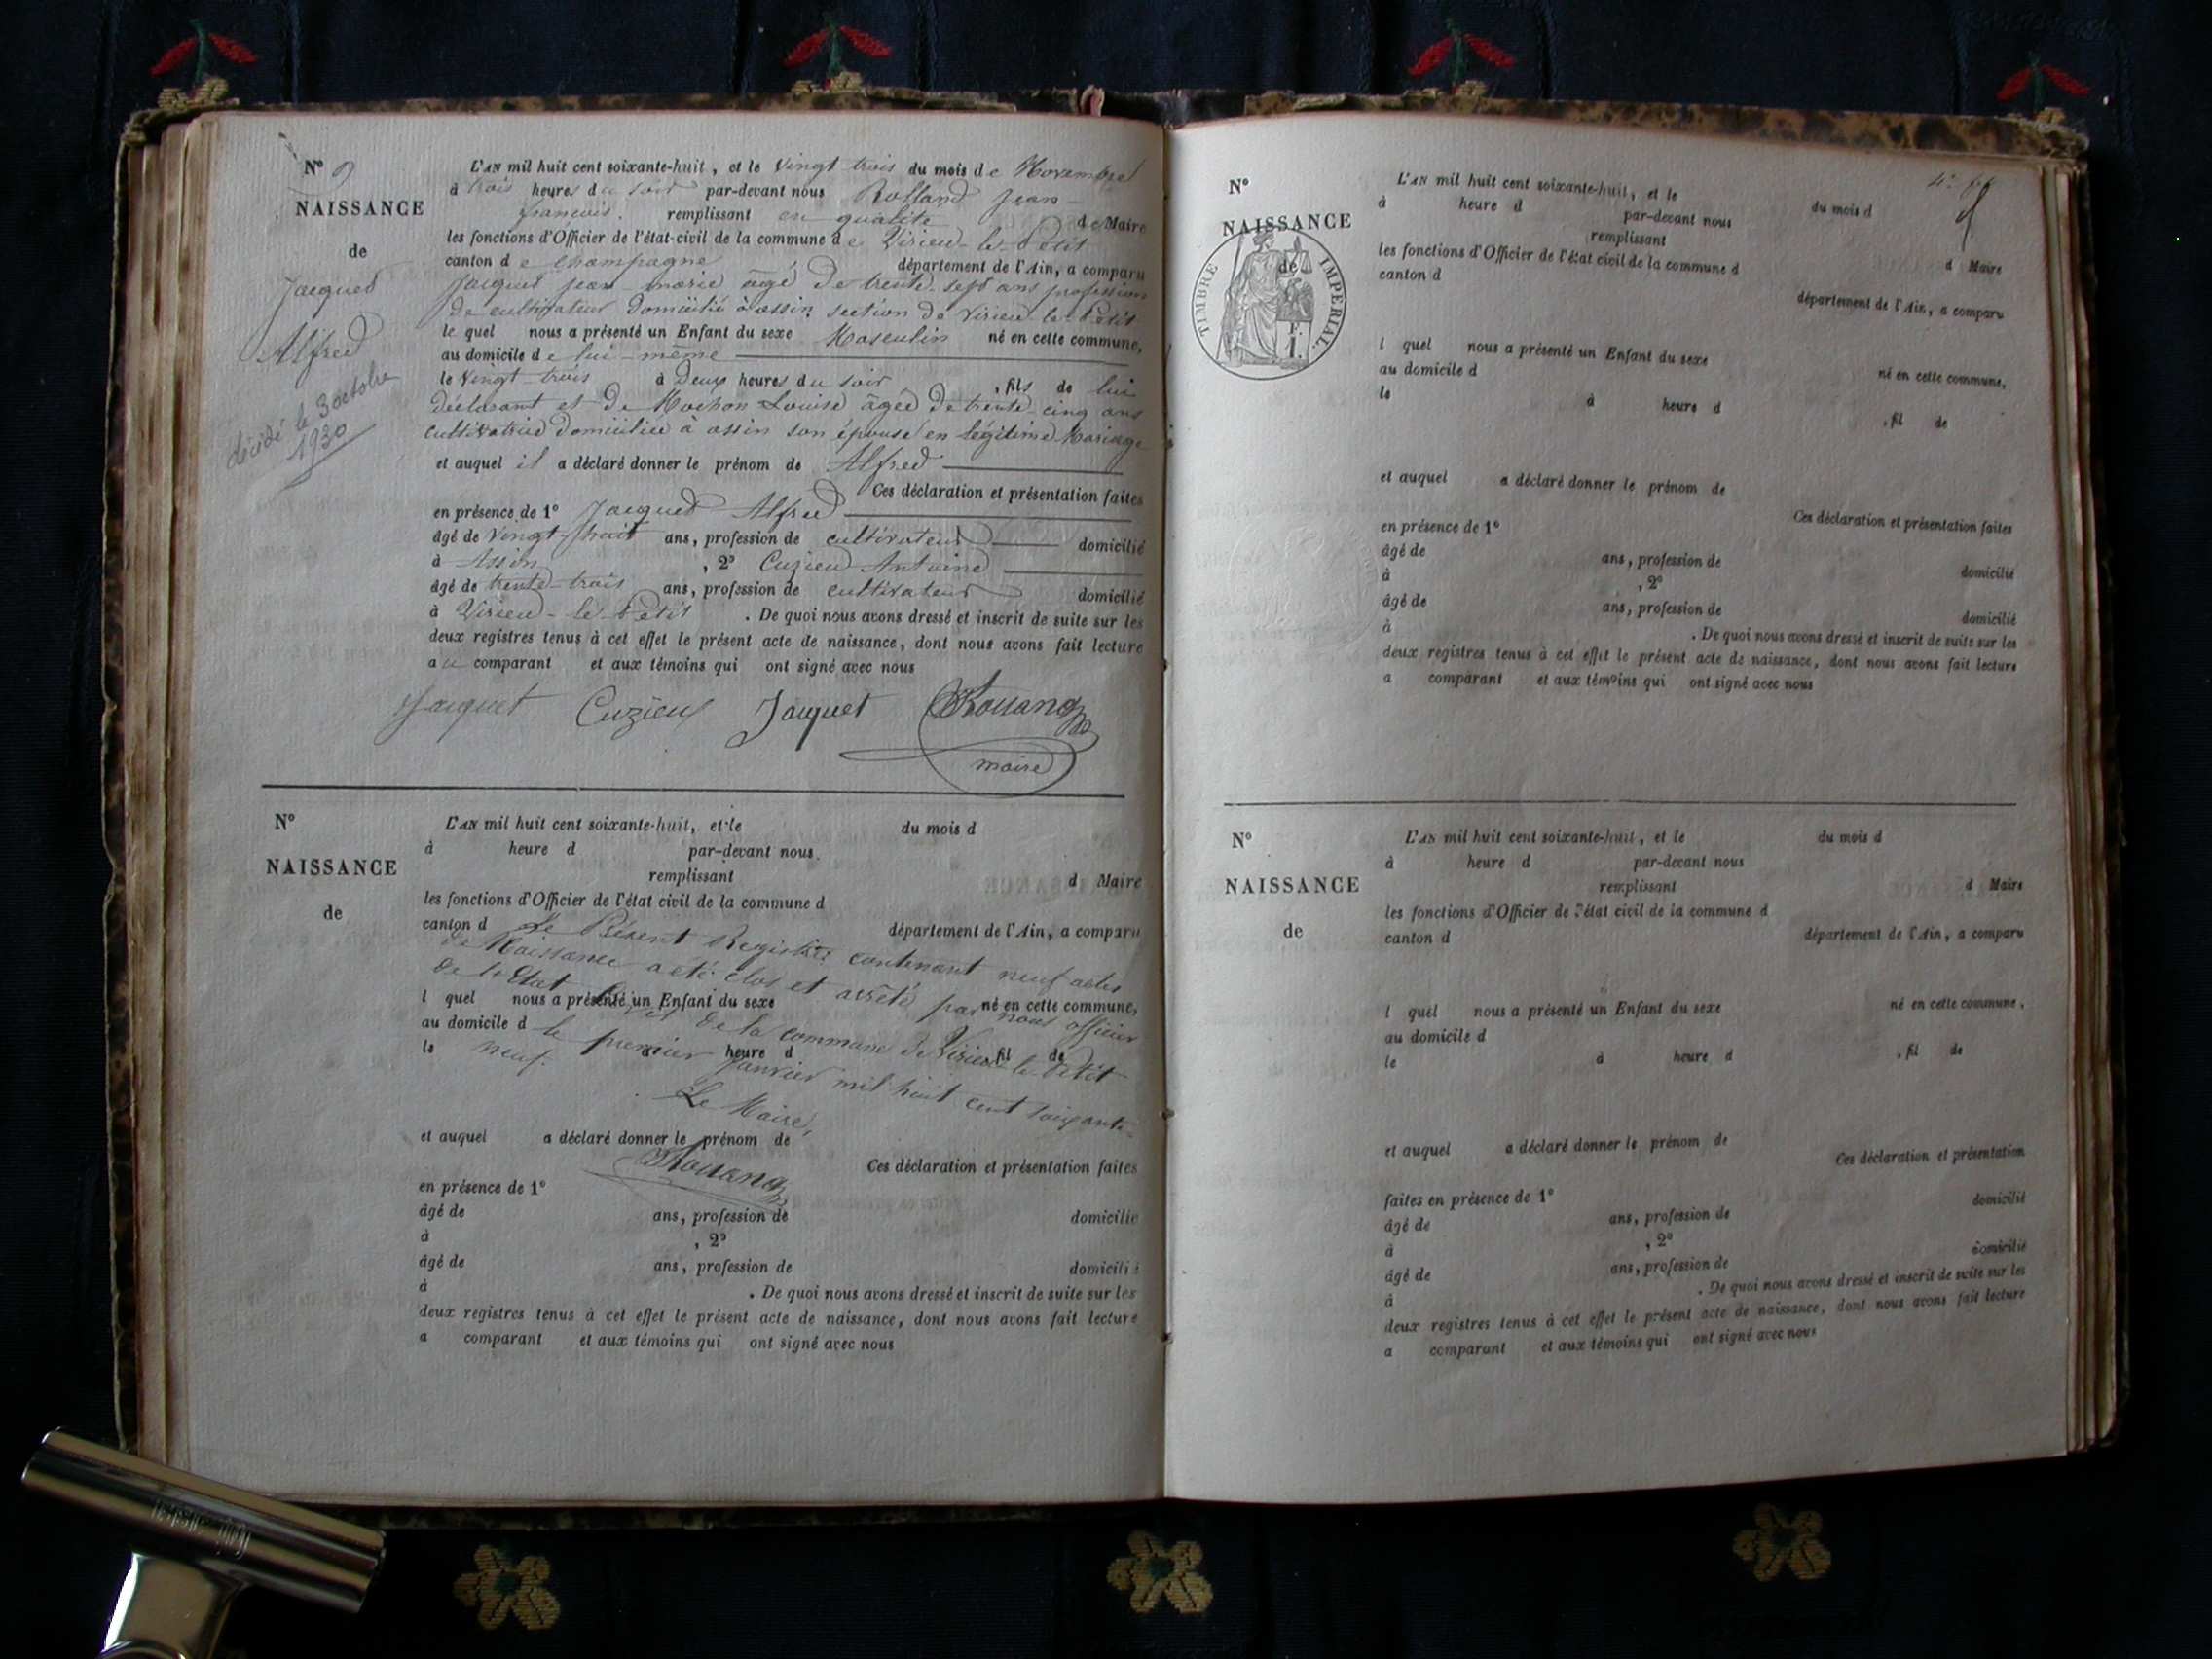 N° 9
NAISSANCE
de
Jacquet
Alfred
décédé le 3 octobre
1930
L'AN mil huit cent soixante-huit, et le Vingt trois du mois de Novembre
à trois heures du soir par-devant nous Rolland Jean-
françois. remplissant en qualité de Maire
les fonctions d'Officier de l'état-civil de la commune de Virieu-le-Petit
canton de Champagne département de l'Ain, a comparu
Jacquet jean-marie âgé de trente-sept ans profession
de cultivateur domicilié à assin section de Virieu-le-Petit
le quel nous a présenté un Enfant du sexe Masculin né en cette commune,
au domicile de lui-même
le Vingt-trois à Deux heures du soir , fils de lui
déclarant et de Mochon Louise âgée de trente-cinq ans
cultivatrice domiciliée à assin son épouse en légitime Mariage
et auquel il a déclaré donner le prénom de Alfred
Ces déclaration et présentation faites
en présence de 1° Jacquet Alfred
âgé de Vingt-huit ans, profession de cultivateur domicilié
à Assin , 2° Cuzieu Antoine
âgé de trente-trois ans, profession de cultivateur domicilié
à Virieu-le-Petit . De quoi nous avons dressé et inscrit de suite sur les
deux registres tenus à cet effet le présent acte de naissance, dont nous avons fait lecture
au comparant et aux témoins qui ont signé avec nous
Jacquet Cuzieux Jacquet Rolland
maire
N°
NAISSANCE
de
L'AN mil huit cent soixante-huit, et le du mois d
à heure d par-devant nous.
remplissant d Maire
les fonctions d'Officier de l'état civil de la commune d
canton d département de l'Ain, a comparu
Le Présent Registre contenant neuf actes
de Naissance a été clos et arrêté par nous officier
de l'Etat civil de la commune de Virieu-le-Petit
l quel nous a présenté un Enfant du sexe né en cette commune,
au domicile d
le premier janvier mil huit cent soixante-
neuf.
le à heure d , fil de
Le Maire,
et auquel a déclaré donner le prénom de
Rolland
Ces déclaration et présentation faites
en présence de 1°
âgé de ans, profession de domicilié
à , 2°
âgé de ans, profession de domicilié
à . De quoi nous avons dressé et inscrit de suite sur les
deux registres tenus à cet effet le présent acte de naissance, dont nous avons fait lecture
a comparant et aux témoins qui ont signé avec nous
N°
NAISSANCE
de
TIMBRE IMPERIAL.
L'AN mil huit cent soixante-huit, et le du mois d
à heure d par-devant nous
remplissant d Maire
les fonctions d'Officier de l'état civil de la commune d
canton d département de l'Ain, a comparu
l quel nous a présenté un Enfant du sexe né en cette commune,
au domicile d
le à heure d , fil de
et auquel a déclaré donner le prénom de
Ces déclaration et présentation faites
en présence de 1°
âgé de ans, profession de domicilié
à , 2°
âgé de ans, profession de domicilié
à . De quoi nous avons dressé et inscrit de suite sur les
deux registres tenus à cet effet le présent acte de naissance, dont nous avons fait lecture
a comparant et aux témoins qui ont signé avec nous
N°
NAISSANCE
de
L'AN mil huit cent soixante-huit, et le du mois d
à heure d par-devant nous
remplissant d Maire
les fonctions d'Officier de l'état civil de la commune d
canton d département de l'Ain, a comparu
l quel nous a présenté un Enfant du sexe né en cette commune,
au domicile d
le à heure d , fil de
et auquel a déclaré donner le prénom de
Ces déclaration et présentation
faites en présence de 1° domicilié
âgé de ans, profession de
à , 2° domicilié
âgé de ans, profession de
à . De quoi nous avons dressé et inscrit de suite sur les
deux registres tenus à cet effet le présent acte de naissance, dont nous avons fait lecture
a comparant et aux témoins qui ont signé avec nous